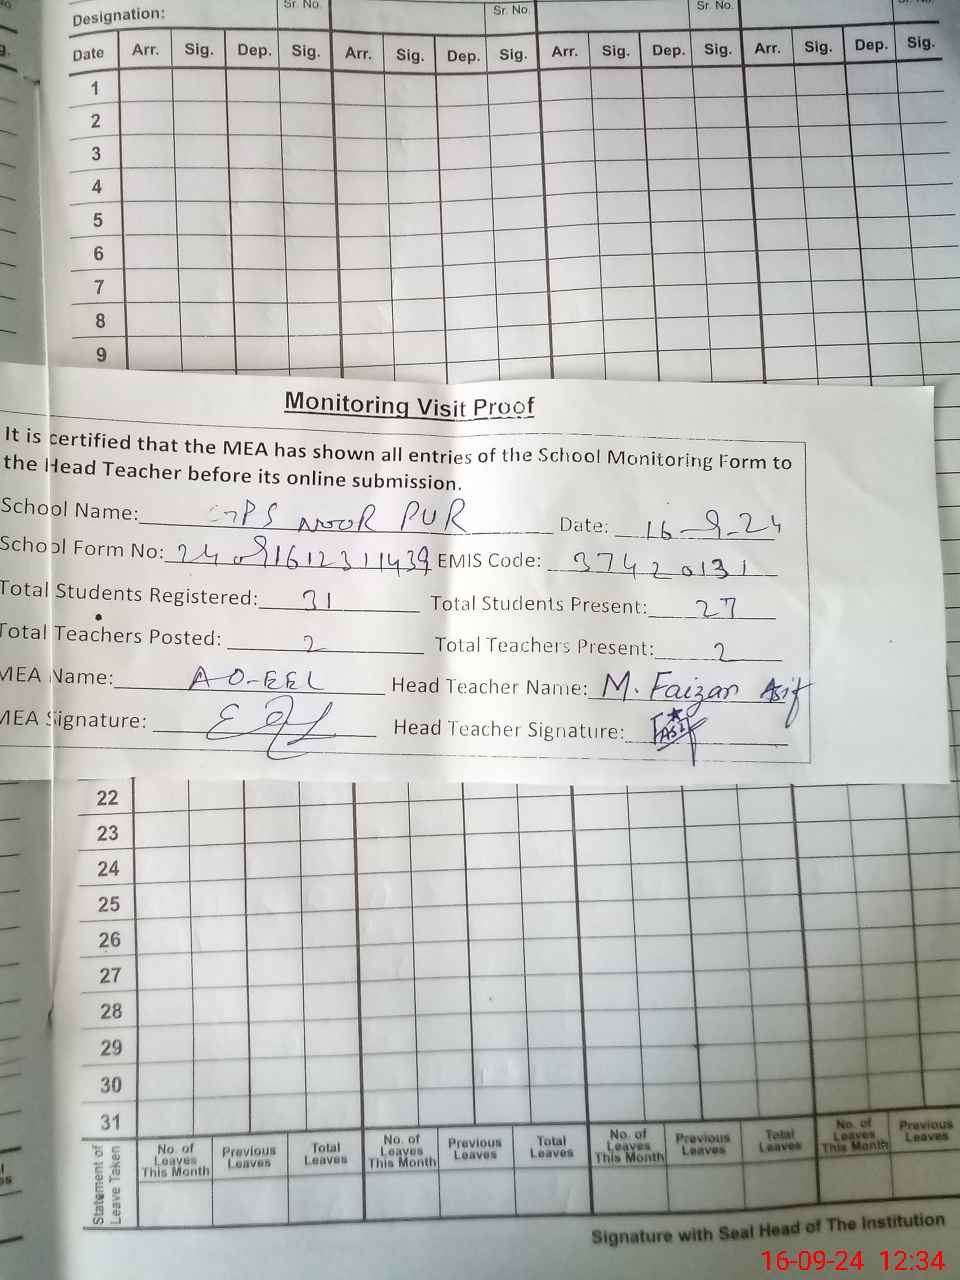 Designation: Sr. No. Sr. No. Sr. No.
Date Arr. Sig. Dep. Sig. Arr. Sig. Dep. Sig. Arr. Sig. Dep. Sig. Arr. Sig. Dep. Sig.
1
2
3
4
5
6
7
8
9
Monitoring Visit Proof
It is certified that the MEA has shown all entries of the School Monitoring Form to
the Head Teacher before its online submission.
School Name: GPS NOOR PUR Date: 16-9-24
School Form No: EMIS Code: 37420131
Total Students Registered: 31 Total Students Present: 27
Total Teachers Posted: 2 Total Teachers Present: 2
MEA Name: Head Teacher Name: M. Faizan Asif
MEA Signature: Head Teacher Signature:
22
23
24
25
26
27
28
29
30
31
Statement of Leave Taken No. of Leaves This Month Previous Leaves Total Leaves No. of Leaves This Month Previous Leaves Total Leaves No. of Leaves This Month Previous Leaves Total Leaves No. of Leaves This Month Previous Leaves
Signature with Seal Head of The Institution
16-09-24 12:34